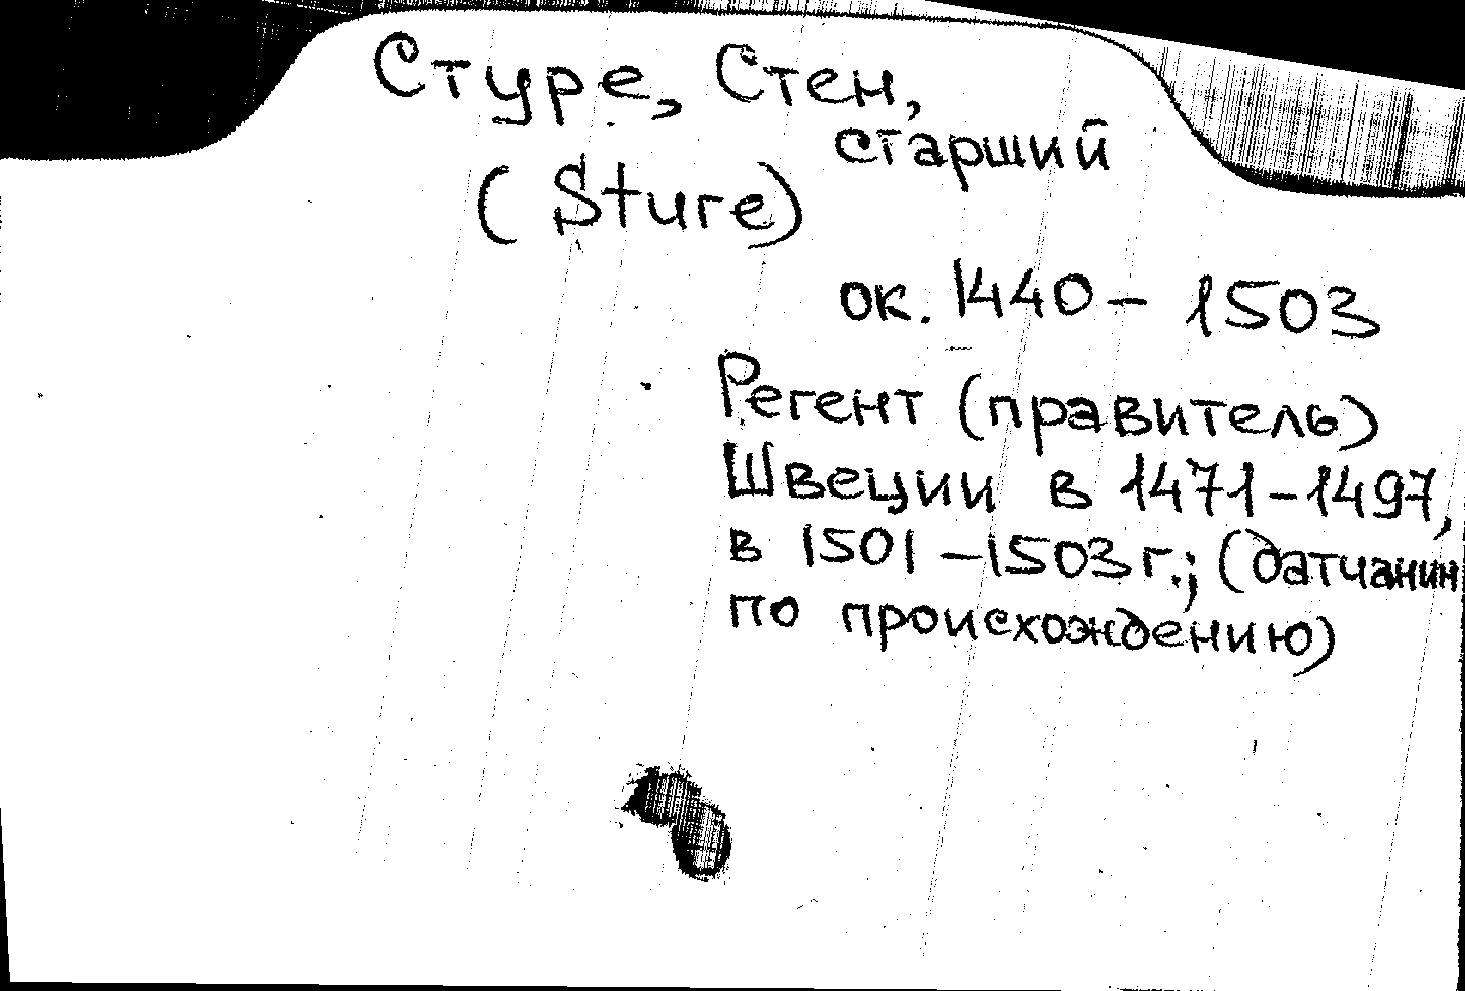 Стуре, Стен,
старший
(Sture)
ок. 1440 - 1503
Регент (правитель)
Швеции в 1471-1497,
в 1501-1503 г.; (датчанин
по происхождению)